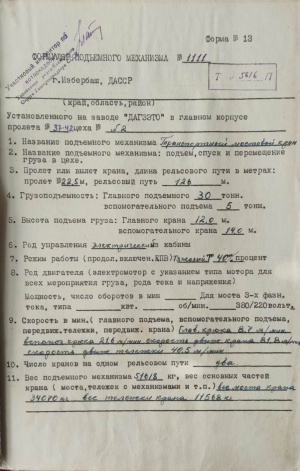 Форма № 13
ФОРМУЛЯР ПОДЪЕМНОГО МЕХАНИЗМА № 1111
г.Избербаш, ДАССР
Т - 5616 П
(край,область,район)
Установленного на заводе "ДАГЗЭТО" в главном корпусе
пролета № 37-42 цеха № 2
1. Название подъемного механизма Транспортный мостовой кран
2. Название подъемного механизма: подъем,спуск и перемещение
груза в цехе.
3. Пролет или вылет крана, длина рельсового пути в метрах:
пролет № 22,5 м, рельсовый путь 126 м.
4. Грузоподъемность: Главного подъемного 30 тонн.
вспомогательного подъема 5 тонн.
5. Высота подъема груза: Главного крана 12.0 м.
вспомогательного крана 14.0 м.
6. Род управления электрический кабины
7. Режим работы (продол.включен.КПВ) Тяжелый Т 40% процент
8. Род двигателя (электромотор с указанием типа мотора для
всех мероприятия груза, рода тока и напряжения)
Мощность, число оборотов в мин Для моста 3-х фазн.
тока, типа квт. об/мин. 380/220 вольт.
9. Скорость в мин.( главного подъема, вспомогательного подъема,
передвиж.тележки, передвиж. крана) Глав.крюка 8.7 м/мин
вспомог крюка 21.6 м/мин скорость движ крана 81.8 м/мин
скорость движ тележки 40,5 м/мин.
10. Число кранов на одном рельсовом пути два
11. Вес подъемного механизма 51618 кг, вес основных частей
крана ( моста,тележек с механизмами и т.п.) вес моста крана
34070 кг вес тележки крана 11568 кг